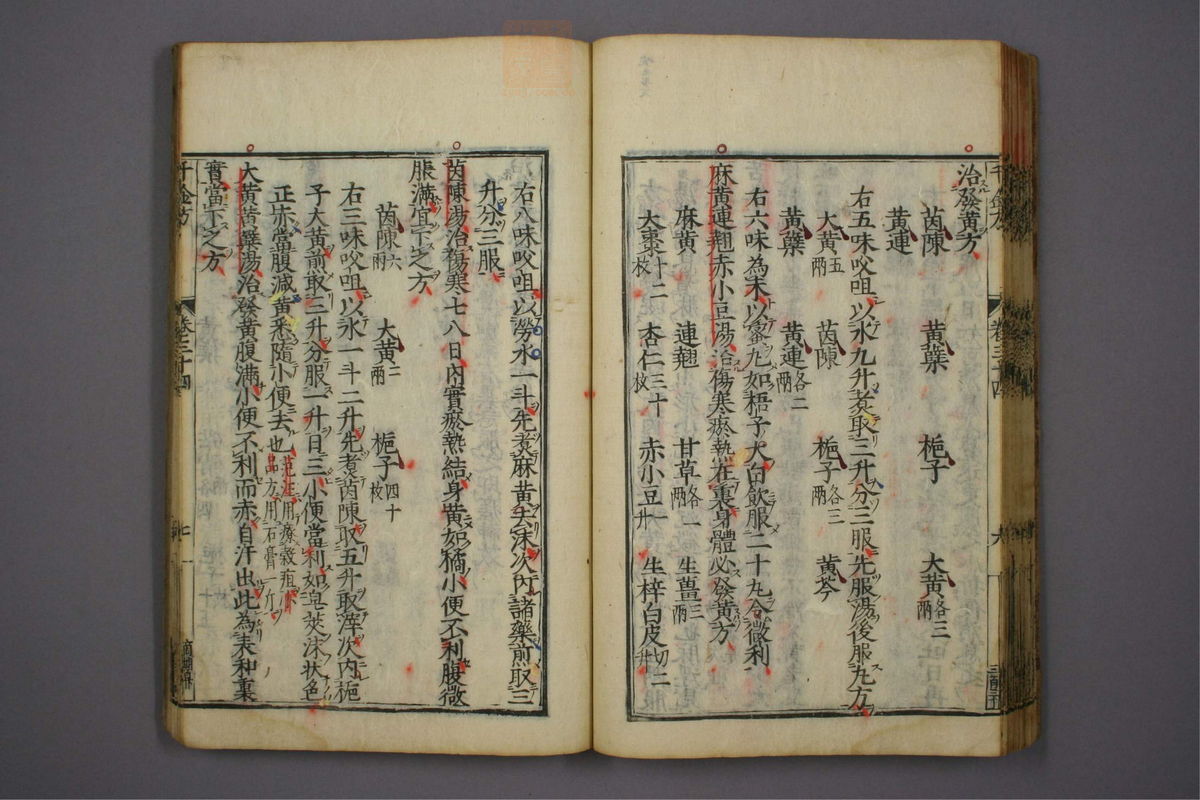 治發黃方
茵陳 黃蘗 梔子 大黃各三兩
黃連
右五味㕮咀以水九升煮取三升分三服先服湯後服丸方
大黃五兩 茵陳 梔子各三兩 黃芩
黃蘗 黃連各二兩
右六味為末以蜜丸如梧子大白飲服二十丸令微利
麻黃連翹赤小豆湯治傷寒瘀熱在裏身體必發黃方
麻黃 連翹 甘草各一兩 生薑三兩
大棗十二枚 杏仁三十枚 赤小豆一升 生梓白皮切二升
千金方 卷三十四
右八味㕮咀以勞水一斗先煮麻黃去沫次內諸藥煎取三
升分三服
茵陳湯治傷寒七八日內實瘀熱結身黃如橘小便不利腹微
脹滿宜下之方
茵陳六兩 大黃二兩 梔子四十枚
右三味㕮咀以水一斗二升先煮茵陳取五升取滓次內梔
子大黃煎取三升分服一升日三小便當利如皂莢沫狀色
正赤當腹減黃悉隨小便去也范汪用療穀疸小品方用石膏一斤
大黃黃蘗湯治發黃腹滿小便不利而赤自汗出此為表和裏
實當下之方
千金方 卷三十四 七